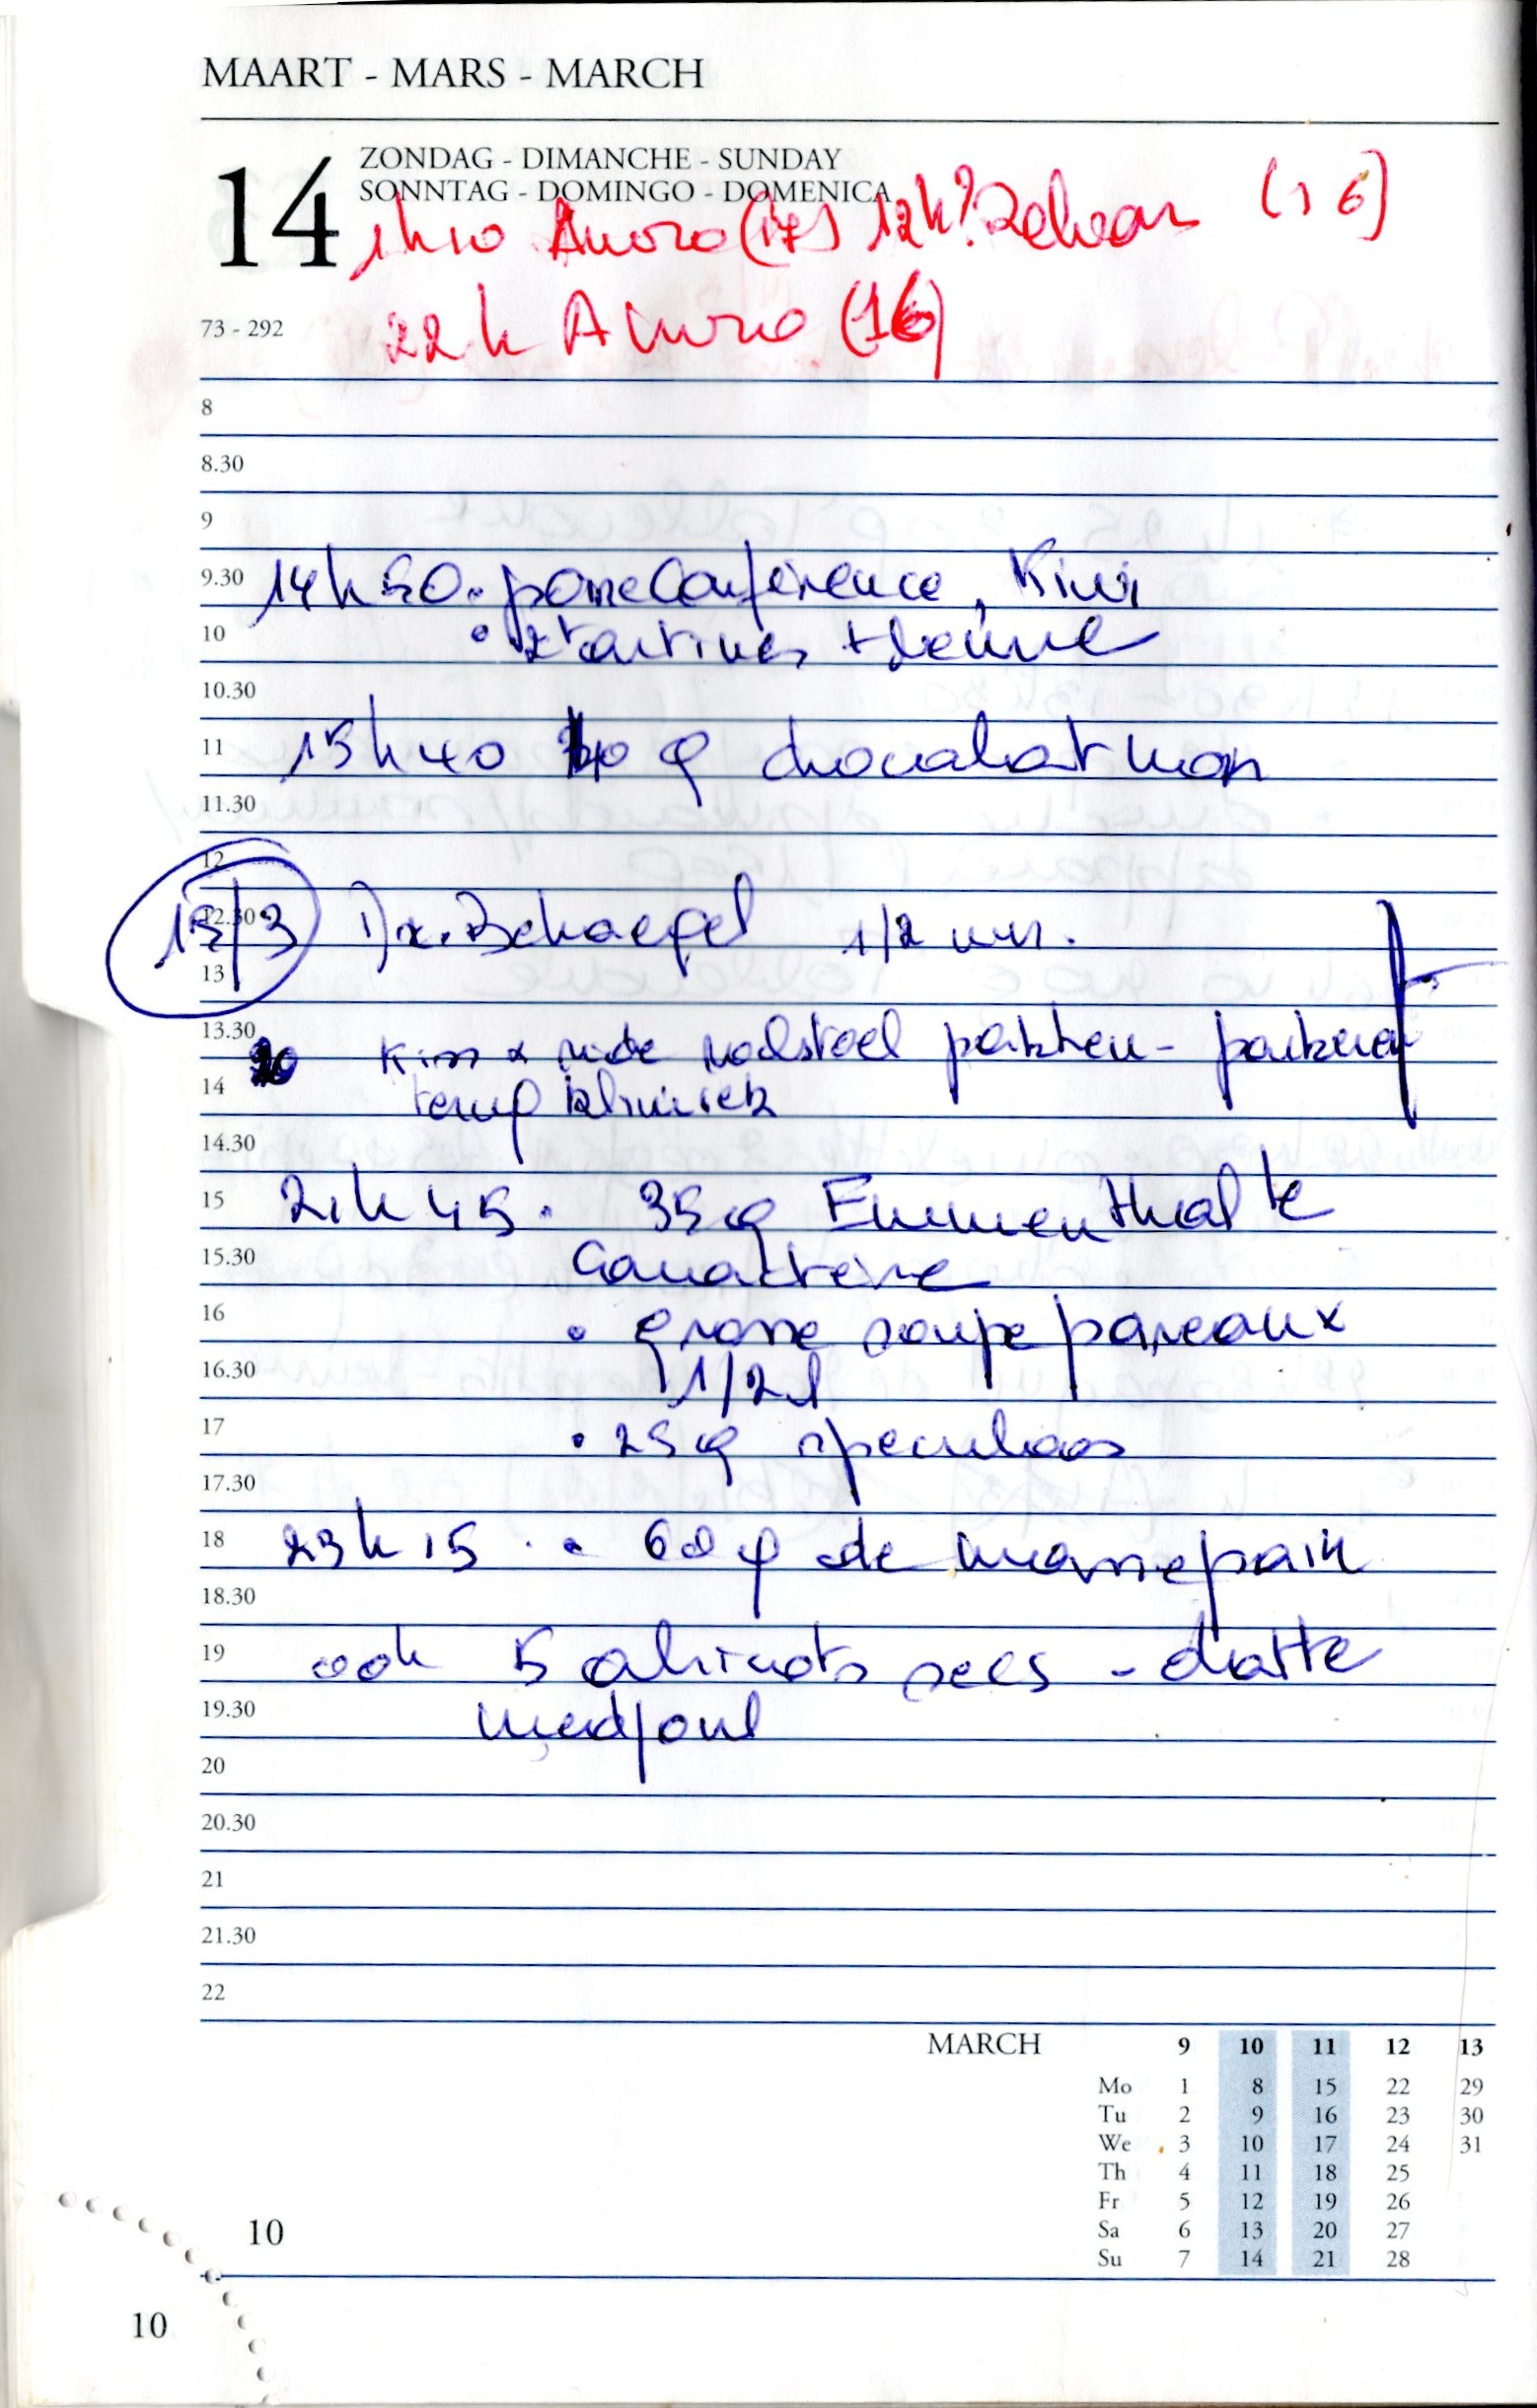 MAART - MARS - MARCH
14
ZONDAG - DIMANCHE - SUNDAY
SONNTAG - DOMINGO - DOMENICA
1h10 (17) 12h? (16)
73 - 292
22h (16)
8
8.30
9
9.30 14h50. poire Conférence, Kiwi
10 • 2 tartines + beurre
10.30
11 15h40 g chocolat noir
11.30
12
12.30 13/3 1/2 uur.
13
13.30 Kiss & ride rolstoel pakken -
14 terug kliniek
14.30
15 21h45. 35g Emmenthal &
15.30
16 • grosse soupe poireaux
16.30 1/2 l
17 • 25g speculoos
17.30
18 23h15 . • 60g de massepain
18.30
19 ooh 5 abricots secs - datte
19.30 medjoul
20
20.30
21
21.30
22
MARCH 9 10 11 12 13
Mo 1 8 15 22 29
Tu 2 9 16 23 30
We 3 10 17 24 31
Th 4 11 18 25
Fr 5 12 19 26
Sa 6 13 20 27
Su 7 14 21 28
10
10